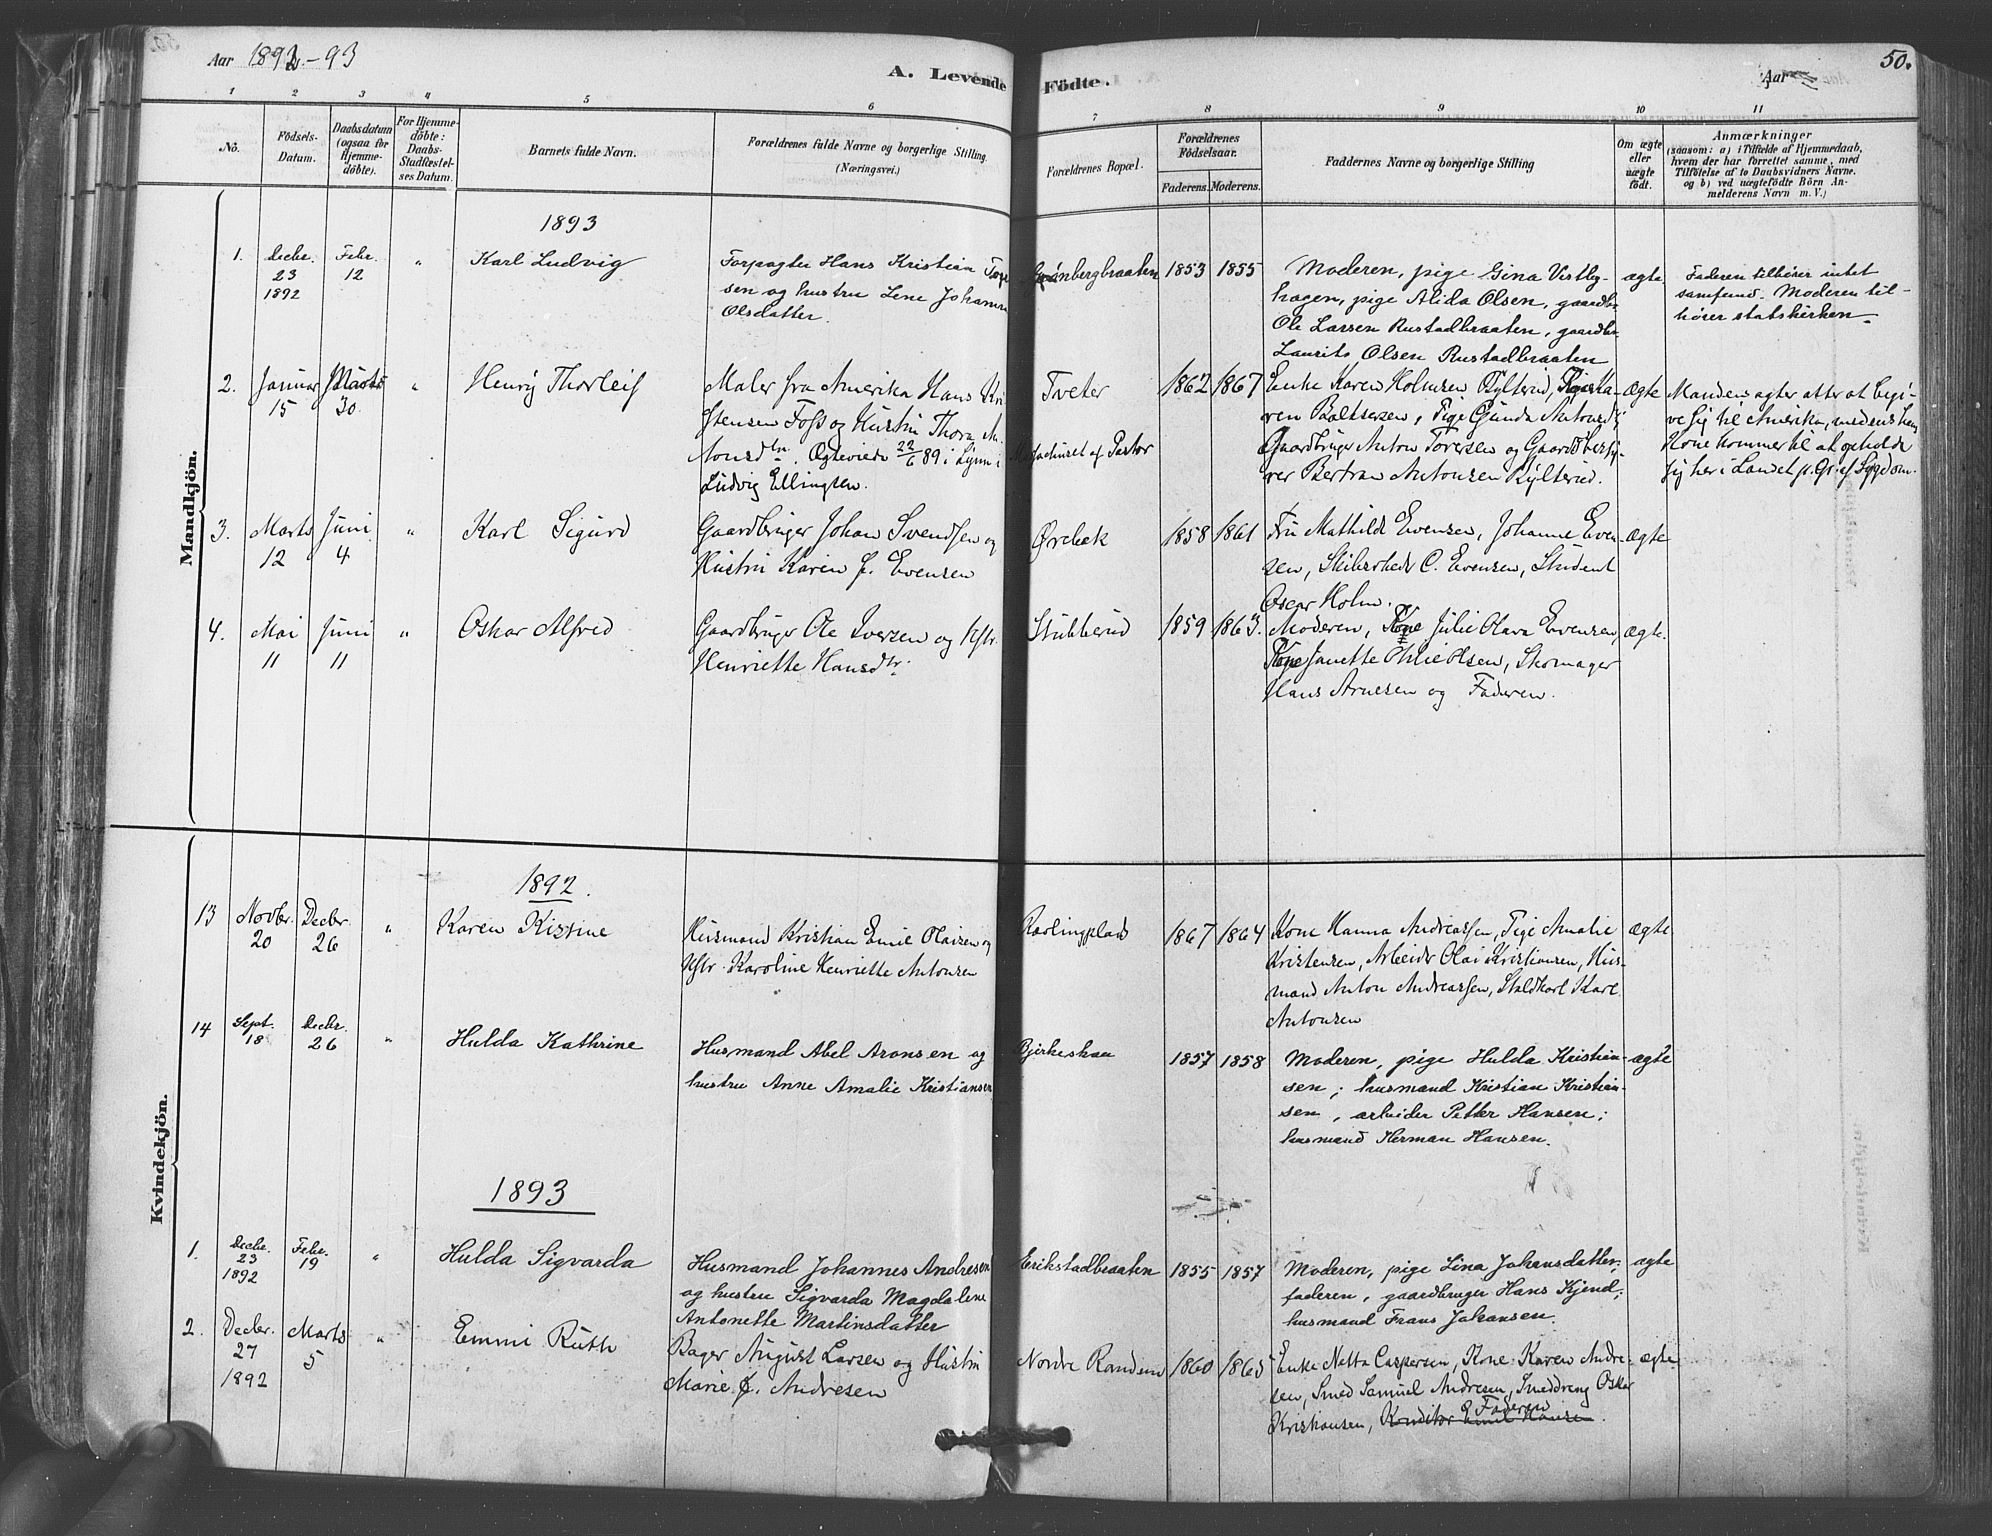 Aar 1892-93
A. Levende Födte.
Aar
50.
1 2 3 4 5 6 7 8 9 10 11
No.
Födsels-Datum.
Daabsdatum (ogsaa for Hjemmedöbte).
For Hjemmedöbte: Daabs-Stadfæstelses Datum.
Barnets fulde Navn.
Forældrenes fulde Navne og borgerlige Stilling (Næringsvei.)
Forældrenes Bopæl.
Forældrenes Födselsaar.
Faderens. Moderens.
Faddernes Navne og borgerlige Stilling
Om ægte eller uægte födt.
Anmærkninger
(saasom: a) i Tilfælde af Hjemmedaab,
hvem der har forrettet samme, med
Tilföielse af to Daabsvidners Navne.
og b) ved uægtefödte Börn An-
melderens Navn m. V.)
Mandkjön.
1893
1. Decbr. 23 1892
Febr. 12
"
Karl Ludvig
Forpagter Hans Kristian
sen og hustru Lene Johanne
Olsdatter.
Grønbergbraaten
1853 1855
Moderen, pige Gina Vestby-
hagen, pige Alida Olsen, gaardbr.
Ole Larsen Rustadbraaten, gaardbr.
Laurits Olsen Rustadbraaten
ægte
Faderen tilhører intet
samfund. Moderen til-
hører statskirken.
2. Januar 15
Marts 30.
"
Henry Thorleif
Maler fra Amerika Hans Kri
stensen Foss og Hustru Thora An
tonsdtr. Ægteviede 22/6 89 i Lynn i
Ludvig Ellingsen.
Tveter
af Pastor
1862 1867
Enke Karen Holmsen Kylterud, Pige Ka-
ren Baltsersen, Pige Gunda Antonsd.,
Gaardbruger Anton Toresen og Gaardbesty-
rer Bertran Antonsen Kylterud.
ægte
Manden agter atter at begi-
ve sig til Amerika, medens hans
Kone kommer til at opholde
sig her i Landet p. Gr. af Sygdom.
3. Marts 12
Juni 4
"
Karl Sigurd
Gaardbruger Johan Svendsen og
Hustru Karen J. Evensen
Ørebek
1858 1861
Fru Mathilde Evensen, Johanne Even-
sen, Skibsrheder C. Evensen, Student
Oscar Holm.
ægte
4. Mai 11
Juni 11
"
Oskar Alfred
Gaardbruger Ole Iversen og Hstr.
Henriette Hansdtr.
Stubberud
1859 1863.
Moderen, Kone Julie Olava Evensen,
Pige Janette Othilie Olsen, Skomager
Hans Arnesen og Faderen.
ægte.
Kvindekjön.
1892.
13 Novbr. 20
Decbr. 26
"
Karen Kistine
Husmand Kristian Emil Olaisen og
Hstr. Karoline Henriette Antonsen
Karlingplads
1867 1864
Kone Hanna Andreassen, Pige Amalie
Kristensen, Arbeider Olai Kristiansen, Hus-
mand Anton Andreassen, Staldkarl Karl
Antonsen
ægte
14 Sept. 18
Decbr. 26
"
Hulda Kathrine
Husmand Abel Aronsen og
hustru Anne Amalie Kristiansen
Bjerkeskau
1857 1858
Moderen, pige Hulda Kristian-
sen; husmand Kristian Kristian-
sen, arbeider Petter Hansen;
husmand Herman Hansen.
ægte
1893
1. Decbr. 23 1892
Febr. 19
"
Hulda Sigvarda
Husmand Johannes Andresen
og hustru Sigvarda Magdalene
Antonette Martinsdatter
Erikstadbraaten
1855 1857
Moderen, pige Lina Johansdatter,
faderen, gaardbruger Hans Kjend,
husmand Frans Johansen.
ægte
2. Decbr. 27 1892
Marts 5
"
Emmi Ruth
Bager August Larsen og Hustru
Marie J. Andresen
Nordre Randem
1860 1865
Enke Netta Caspersen, Kone Karen Andre-
sen, Smed Samuel Andresen, Smeddreng Oskar
Kristiansen, Konditor Emil Hansen. Faderen
ægte